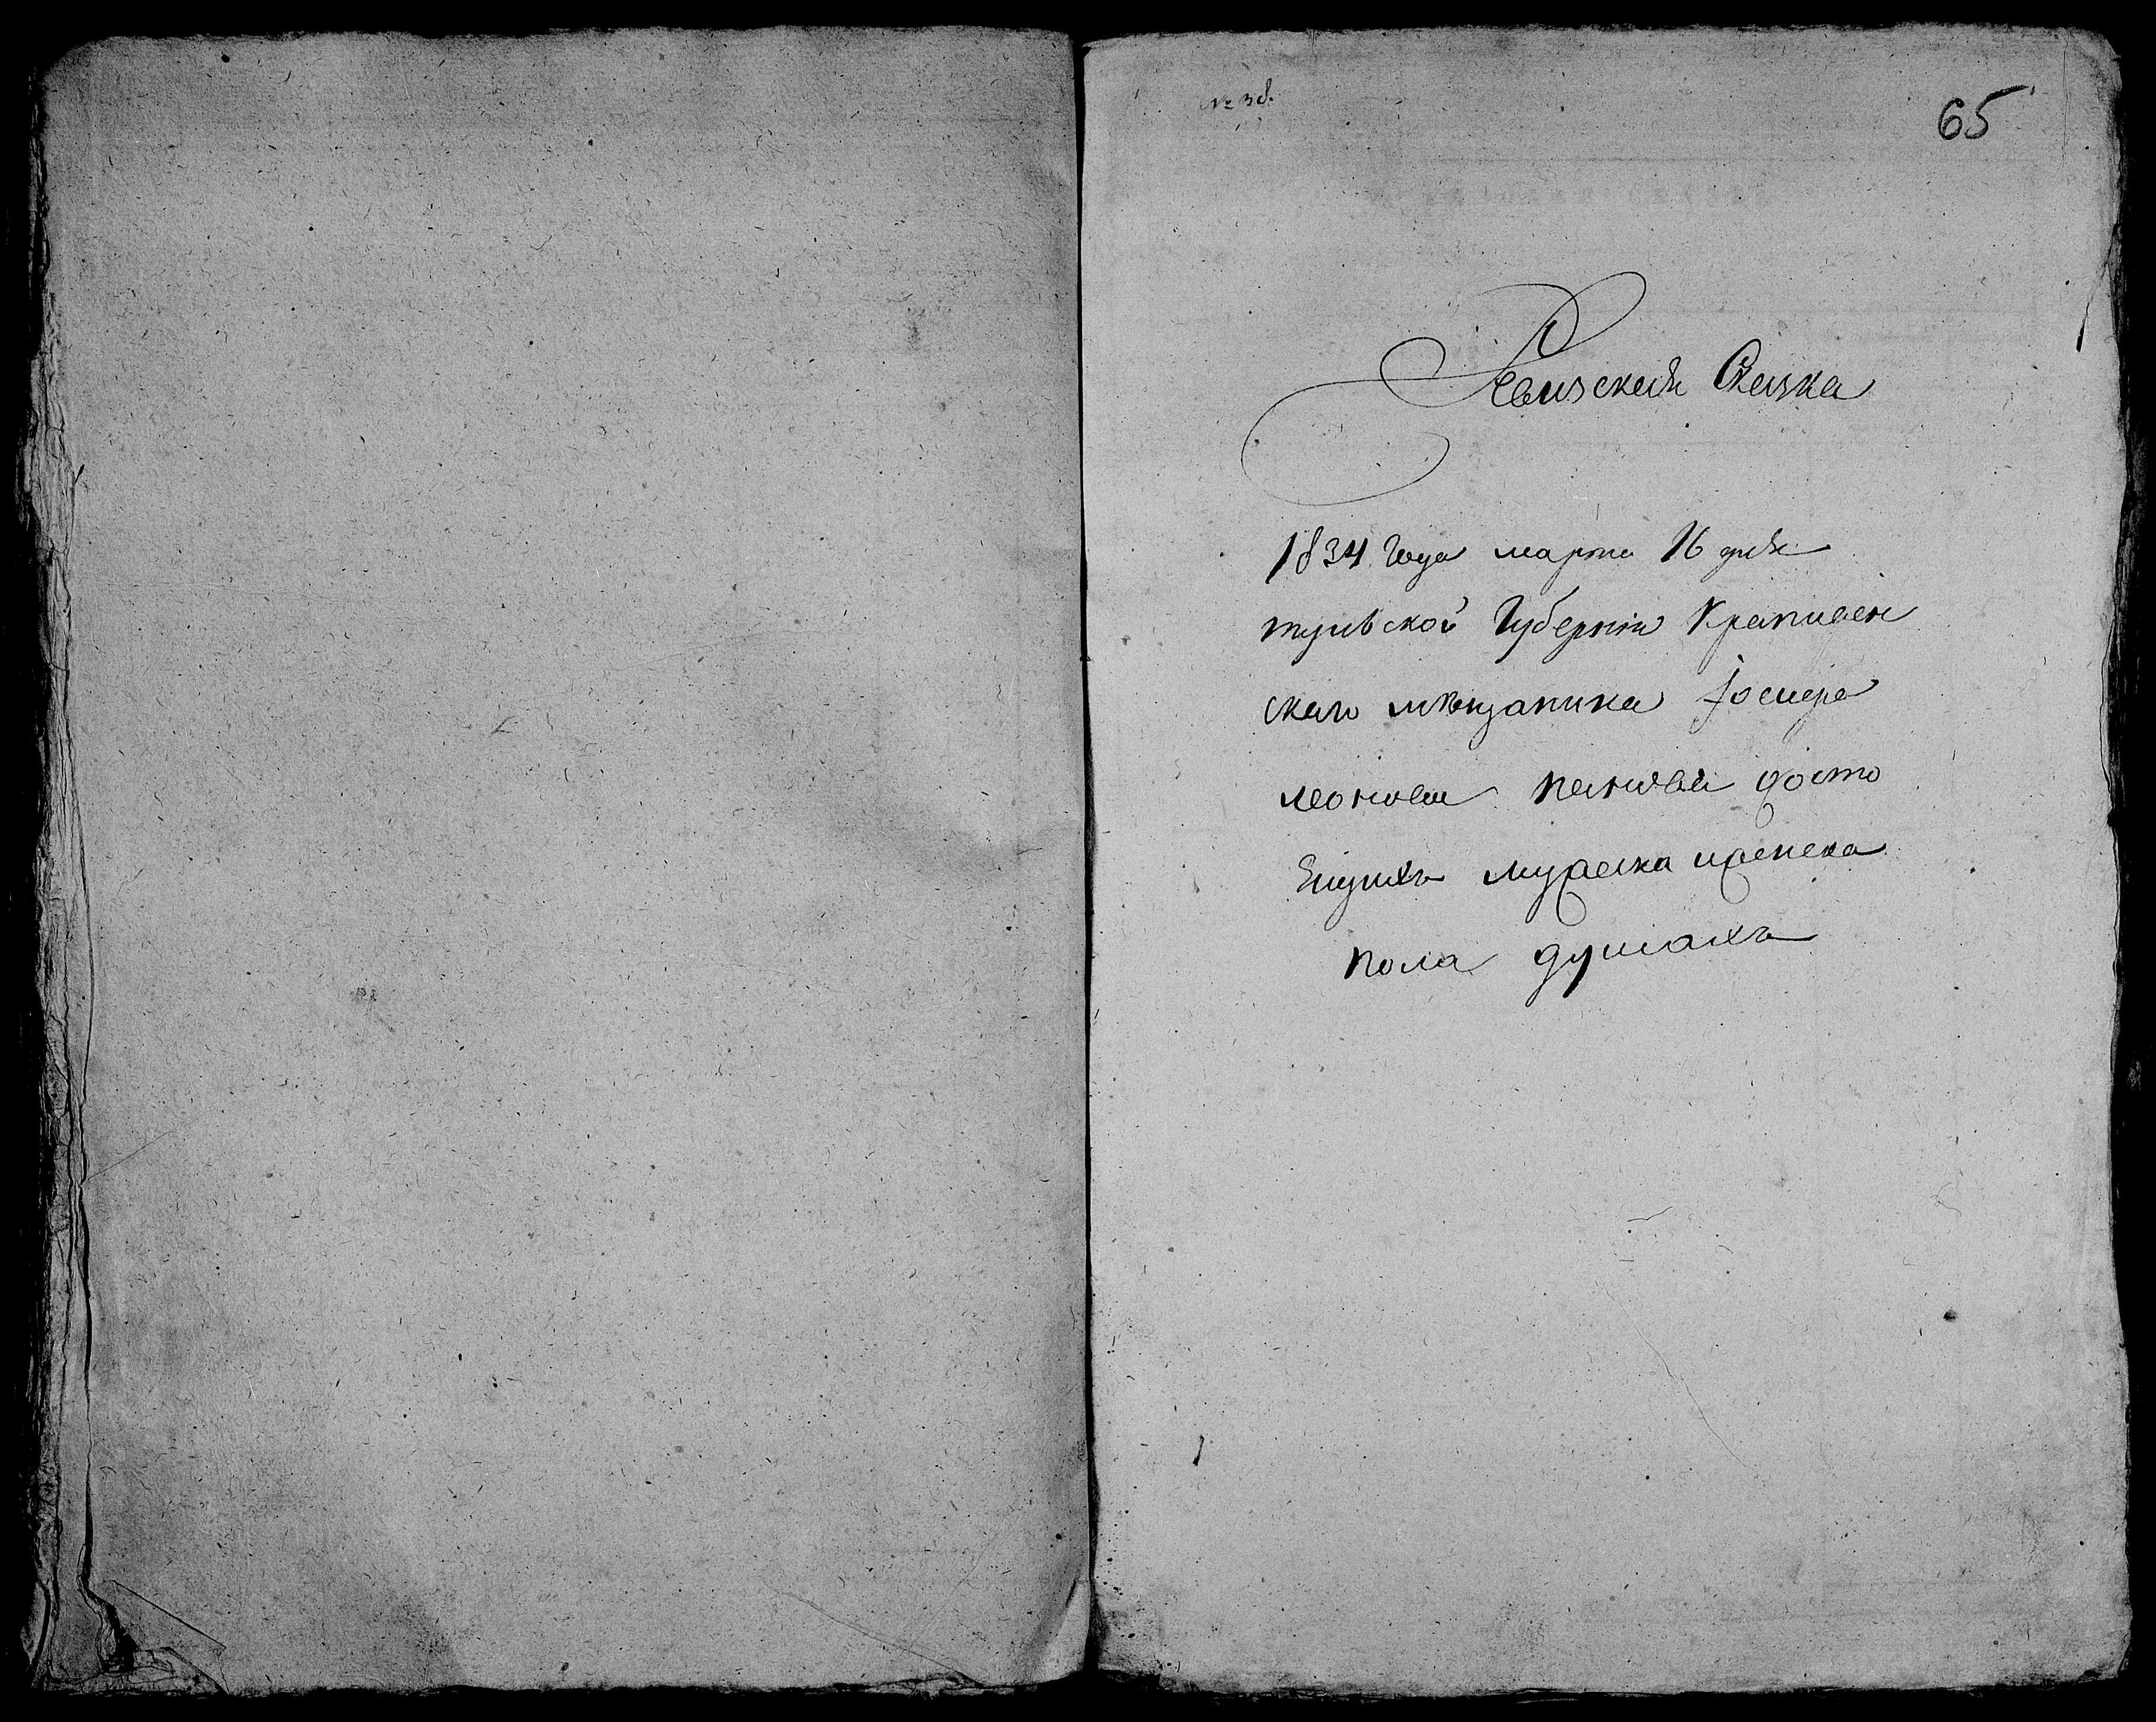 № 38.
65
Ревизская Сказка
1834 Года марта 16 дня
тульской Губернiи Крапивен
скаго мѣщанина
леонова Панова о состо
ящихъ мужеска иженска
пола душахъ